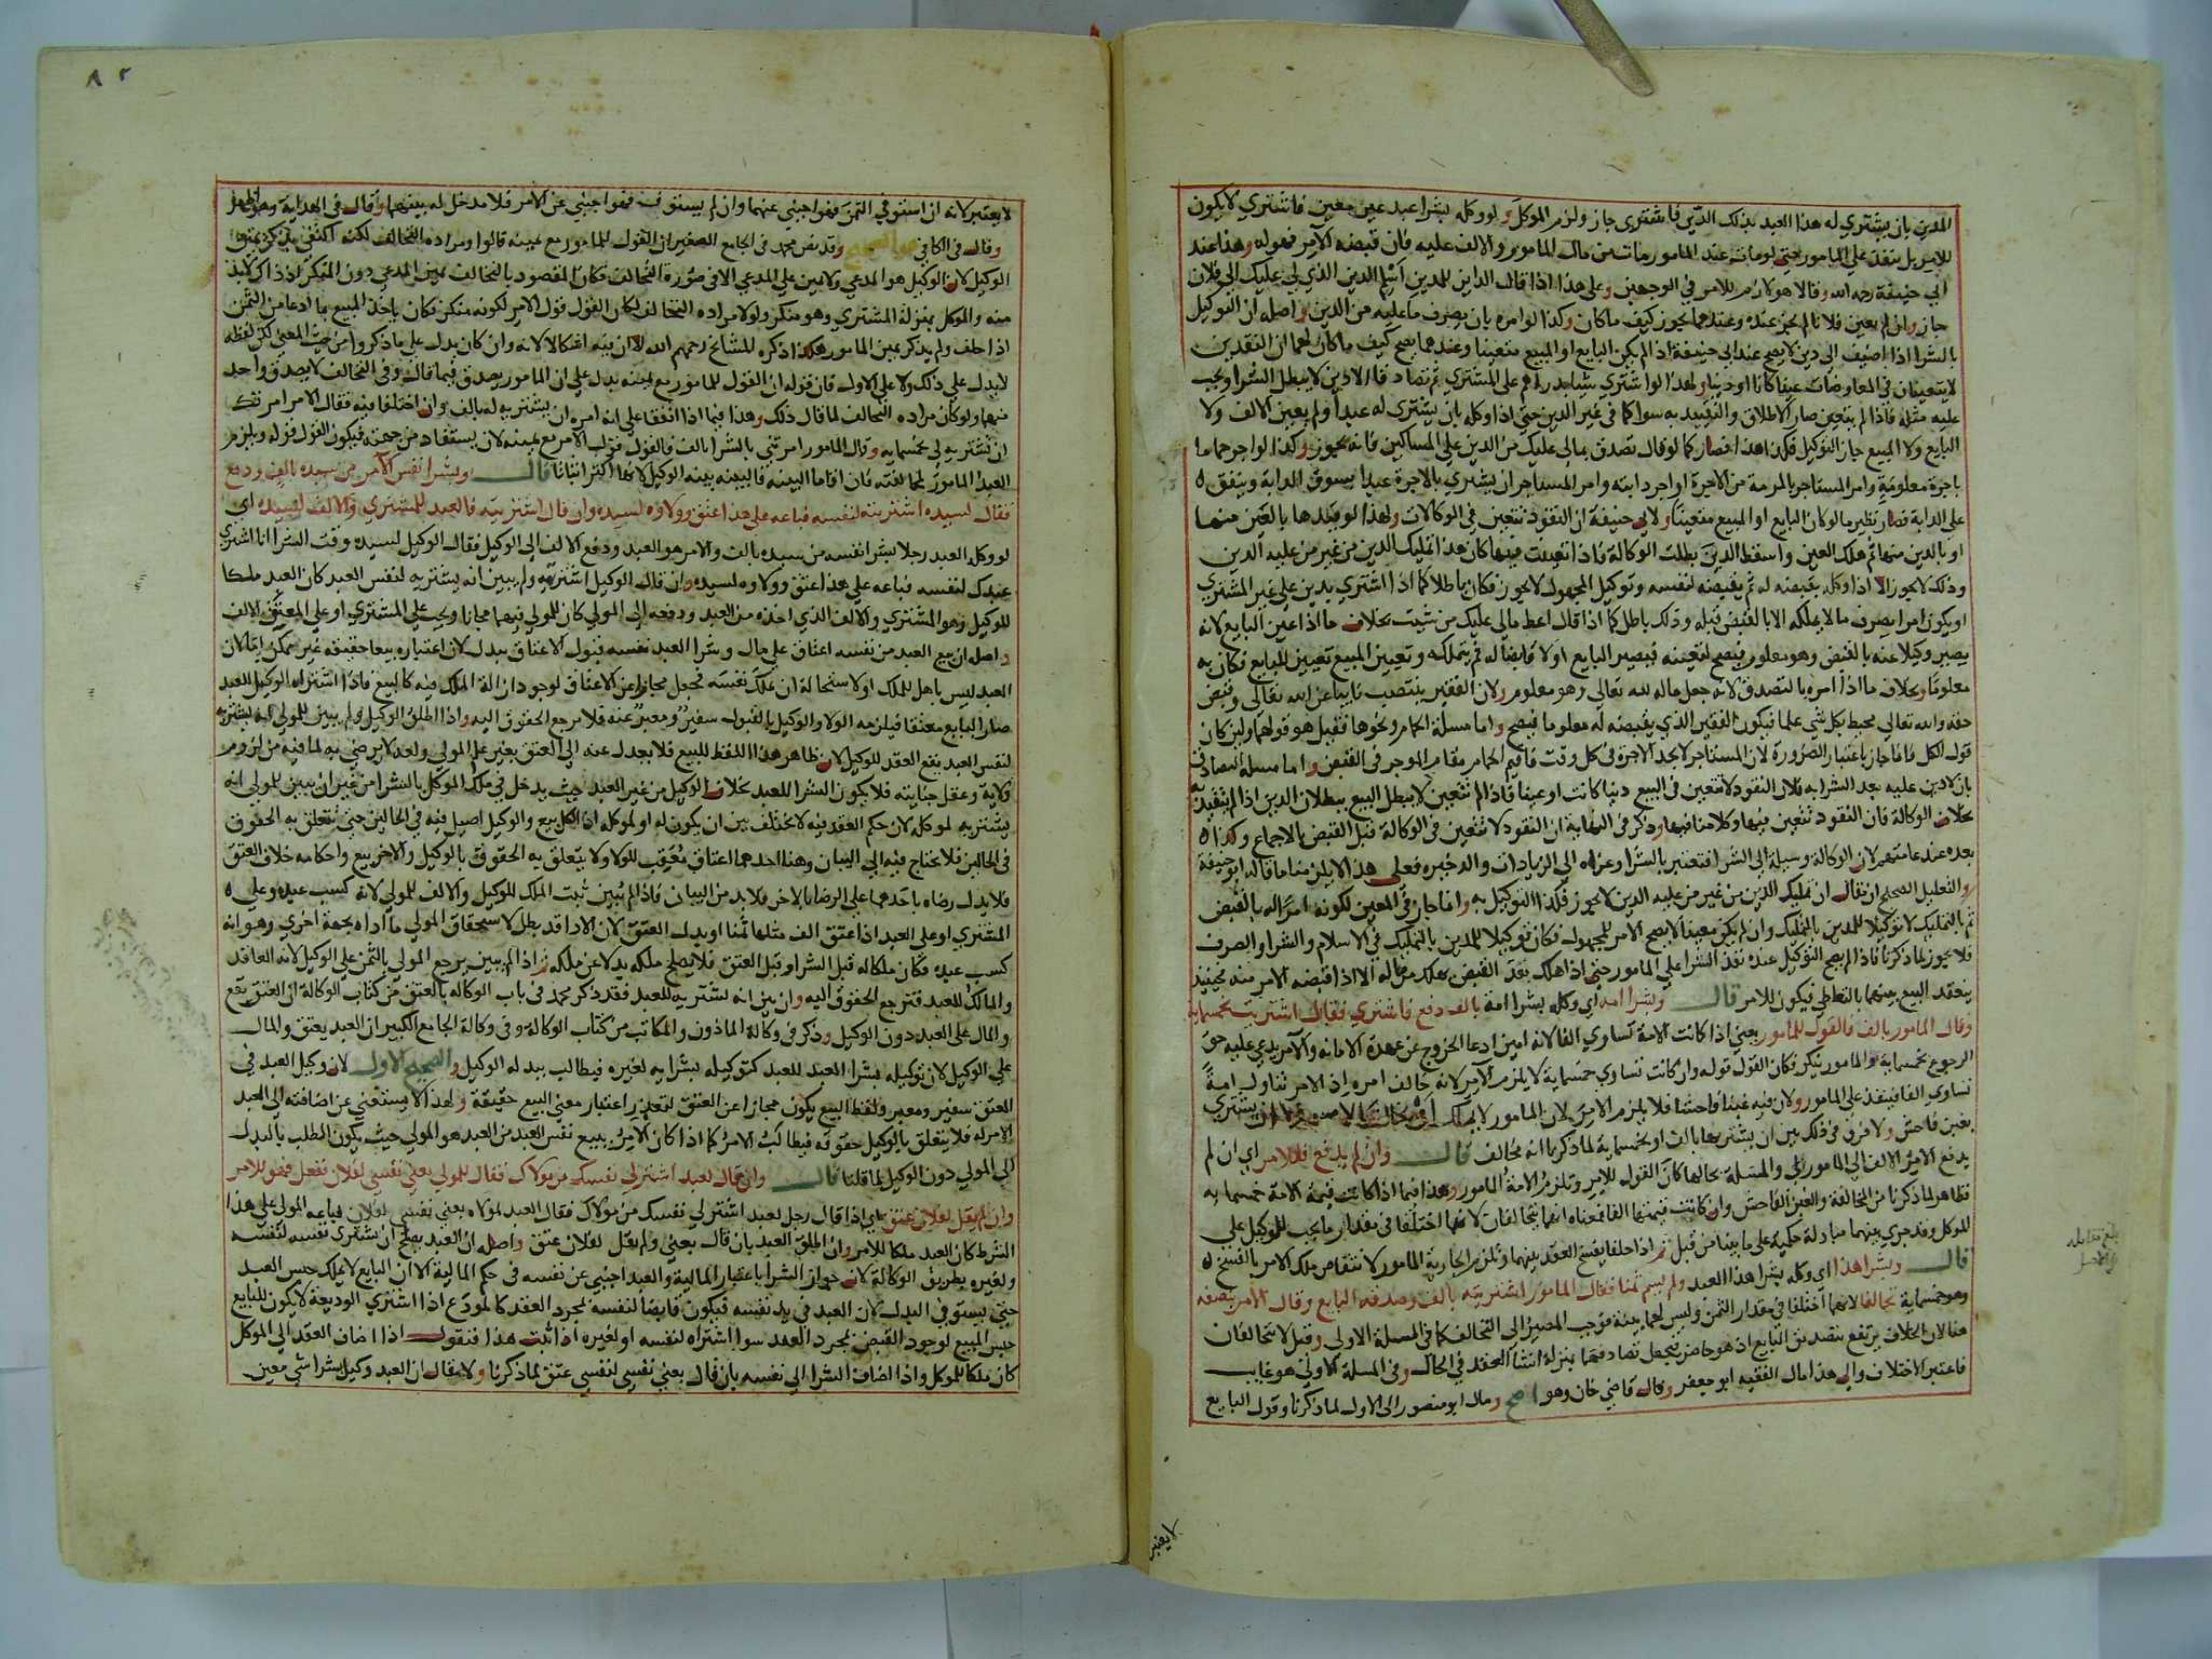 المدين بان يشتري له هذا العبد بذلك الدين فاشترى جاز ولزم الموكل ولو وكله بشرا عبد غير معين فاشتري لا يكون
للامر بل ينفذ علي المامور حتى لو مات عند المامور مات من مال المامور والالف عليه فان قبضه الآمر فهو له وهذا عند
ابي حنيفة رحمه الله وقالا هو لازم للامر في الوجهين وعلى هذا اذا قال الداين للمدين اسلم الدين الذي لي عليك الى فلان
جاز وان لم يعين فلانا لم يجز عنده وعندهما يجوز كيف ما كان وكذا لو امره بان يصرف ما عليه من الدين واصله ان التوكيل
بالشرا اذا اضيف الى دين لا يصح عند ابي حنيفة اذا لم يكن البايع او المبيع متعينا وعندهما يصح كيف ما كان لهما ان النقدين
لا يتعينان في المعاوضات عينا كانا او دينا ولهذا لو اشتري شيا بدراهم على المشتري ثم تصادقا ان لا دين لا يبطل الشرا ويجب
عليه مثله فاذا لم يتعين صار الاطلاق والتقييد به سوا كما في غير الدين حتى اذا وكله بان يشتري له عبدا ولم يعين الالف ولا
البايع ولا المبيع جاز التوكيل فكذا هذا فصار كما لو قال تصدق بمالي عليك من الدين على المساكين فانه يجوز وكذا لو اجر حماما
باجرة معلومة وامر المستاجر بالمرمة من الاجرة او اجر دابته وامر المستاجر ان يشتري بالاجرة عبدا يسوق الدابة وينفق
على الدابة فصار نظير ما لو كان البايع او المبيع متعينا ولابي حنيفة ان النقود تتعين في الوكالات ولهذا لو قيدها بالعين منهما
او بالدين منهما ثم هلك العين واسقط الدين بطلت الوكالة فاذا تعينت فيها كان هذا تمليك الدين من غير من عليه الدين
وذلك لا يجوز الا اذا وكله بقبضه له ثم يقبضه لنفسه وتوكيل المجهول لا يجوز فكان باطلا كما اذا اشتري بدين على غير المشتري
او يكون امرا بصرف ما لا يملكه الا بالقبض قبله وذلك باطل كما اذا قال اعط مالي عليك من شيت بخلاف ما اذا عين البايع لانه
يصير وكيلا عنه بالقبض وهو معلوم فيصح لتعينه فيصير البايع اولا قابضا له ثم يتملكه وتعيين المبيع تعيين للبايع فكان به
معلوما وبخلاف ما اذا امره بالتصدق لانه جعل ماله لله تعالى وهو معلوم ولان الفقير ينتصب نايبا عن الله تعالى وقبض
حقه والله تعالى محيط بكل شي علما فيكون الفقير الذي يقبضه له معلوما فيصح واما مسلة الحمام ونحوها فقيل هو قولهما ولين كان
قول الكل فانما جاز باعتبار الضرورة لان المستاجر لا يجد الاجرة في كل وقت فاقيم الحمام مقام الموجر في القبض واما مسلة التصادق
بان لا دين عليه بعد الشرا به فلان النقود لا تتعين في البيع دينا كانت او عينا فاذا لم تتعين لا يبطل البيع ببطلان الدين اذا لم تتقيد به
بخلاف الوكالة فان النقود تتعين فيها وكلامنا فيها وذكر في النهاية ان النقود لا تتعين في الوكالة قبل القبض بالاجماع وكذا
بعده عند عامتهم لان الوكالة وسيلة الى الشرا فتعتبر بالشرا وعزاه الي الزيادات والدخيره فعلى هذا لا يلزمنا ما قاله ابو حنيفة
والتعليل الصحيح ان يقال ان تمليك الدين من غير من عليه الدين لا يجوز فكذا التوكيل به وانما جاز في المعين لكونه امرا له بالقبض
ثم بالتمليك لا توكيلا للمدين بالتمليك وان لم يكن معينا لا يصح الامر للمجهول فكان توكيلا للمدين بالتمليك في الاسلام والشرا والصرف
فلا يجوز لما ذكرنا فاذا لم يصح التوكيل عنده نفذ الشرا علي المامور حتى اذا هلك بعد القبض يهلك من ماله الا اذا قبضه الامر منه فحينيذ
ينعقد البيع بينهما بالتعاطي فيكون للامر قال وبشرا امة اي وكله بشرا امة بالف دفع فاشتري فقال اشتريت بخمسماية
وقال المامور بالف فالقول للمامور يعني اذا كانت الامة تساوي الفا لانه امين ادعا الخروج عن عهدة الامانه والآمر يدعي عليه حق
الرجوع بخمسماية والمامور ينكر فكان القول قوله وان كانت تساوي خمسماية لا يلزم الآمر لانه خالف امره اذ الامر تناول امة
تساوي الفا فينفذ على المامور ولان فيه غبنا فاحشا فلا يلزم الامر لان المامور لا يملك ان يشتري
بغبن فاحش ولا فرق في ذلك بين ان يشتريها بالف او بخمسماية لما ذكرنا انه مخالف قال وان لم يدفع فللامر اي ان لم
يدفع الامر الالف الى المامور والمسلة بحالها كان القول للامر وتلزم الامة المامور وهذا فيما اذا كانت قيمة الامة خمسمايه
فظاهر لما ذكرنا من المخالفة والغبن الفاحش وان كانت قيمتها الفا فمعناه انهما يتحالفان لانهما اختلفا في مقدار ما يجب للوكيل علي
الموكل وقد جري بينهما مبادلة حكمية على ما بينا من قبل ثم اذا حلفا يفسخ العقد بينهما وتلزم الجارية المامور لانتقاض ملك الامر بالفسخ
قال وبشرا هذا اي وكله بشرا هذا العبد ولم يسم ثمنا فقال المامور اشتريته بالف وصدقه البايع وقال الآمر بنصفه
وهو خمسماية تحالفا لانهما اختلفا في مقدار الثمن وليس لهما بينة فوجب المصير الى التحالف كما في المسلة الاولى وقيل لا تحالفان
هنا لان الخلاف يرتفع بتصديق البايع اذ هو حاضر فيجعل تصادقهما بمنزلة انشا العقد في الحال وفي المسلة الاولى هو غايب
فاعتبر الاختلاف والى هذا مال الفقيه ابو جعفر وقال قاضي خان وهو اصح ومال ابو منصور الى الاول لما ذكرنا وقول البايع
لا يعتبر
بلغ مقابله
٨٢
لا يعتبر لانه ان استوفي الثمن فهو اجنبي عنهما وان لم يستوف فهو اجنبي عن الامر فلا مدخل له بينهما وقال في الهداية وهو اظهر
وقال في الكافي وهو الصحيح وقد نص محمد في الجامع الصغير ان القول للمامور مع يمينه قالوا ومراده التحالف لكنه اكتفي بذكر يمين
الوكيل لان الوكيل هو المدعي ولا يمين علي المدعي الا في صورة التحالف فكان المقصود بالتحالف يمين المدعي دون المنكر اذ ذاك لا بد
منه والموكل بمنزلة المشتري وهو منكر ولولا مراده التحالف لكان القول قول الامر لكونه منكر فكان ياخذ المبيع بما ادعا من الثمن
اذا حلف ولم يذكر يمين المامور هكذا ذكره المشايخ رحمهم الله الا ان فيه اشكالا لانه وان كان يدل على ما ذكروا من حيث المعنى لكن لفظه
لا يدل علي ذلك ولا على الاول فان قوله ان القول للمامور مع يمينه يدل علي ان المامور يصدق فيما قال وفي التحالف لا يصدق واحد
منهما ولو كان مراده التحالف لما قال ذلك وهذا فيما اذا اتفقا على انه امره ان يشتريه له بالف وان اختلفا فيه فقال الامر امرتك
ان تشتريه لي بخمسمايه وقال المامور امرتني بالشرا بالف فالقول قول الامر مع يمينه لان يستفاد من جهته فيكون القول قوله ويلزم
العبد المامور لمخالفته فان اقاما البينة فالبينه بينه الوكيل لانها اكثر اثباتا قال وبشرا نفس الآمر من سيده بالف ودفع
فقال لسيده اشتريته لنفسه فباعه على هذا عتق وولاوه لسيده وان قال اشتريته فالعبد للمشتري والالف لسيده اي
لو وكل العبد رجلا بشرا نفسه من سيده بالف والامر هو العبد ودفع الالف الى الوكيل فقال الوكيل لسيده وقت الشرا انا اشتري
عبدك لنفسه فباعه علي هذا عتق وولاوه لسيده وان قال الوكيل اشتريه ولم يبين انه يشتريه لنفس العبد كان العبد ملكا
للوكيل وهو المشتري والالف الذي اخذه من العبد ودفعه الى المولي كان للمولي فيهما مجانا ويجب علي المشتري او علي المعتق الالف
واصله ان بيع العبد من نفسه اعتاق على مال وشرا العبد نفسه قبول الاعتاق ببدل لان اعتباره بيعا حقيقه غير ممكن اما لان
العبد ليس باهل للملك او لاستحالة ان يملك نفسه فجعل مجازا عن الاعتاق لوجود ازالة الملك فيه كالبيع فاذا اشتراه الوكيل للعبد
صار البايع معتقا فيلزمه الولا والوكيل بالقبول سفير ومعبر عنه فلا مرجع الحقوق اليه واذا اطلق الوكيل ولم يبين للمولى انه يشتريه
لنفس العبد يقع العقد للوكيل لان ظاهر هذا اللفظ للبيع فلا يعدل عنه الي العتق بغير علم المولي ولعله لا يرضي به لما فيه من لزوم
ولاية وعقل جنايته فلا يكون الشرا للعبد بخلاف الوكيل من غير العبد حيث يدخل في ملك الموكل بالشرا من غير ان يبين للمولي انه
يشتريه لموكله لان حكم العقد فيه لا يختلف بين ان يكون له او لموكله اذ الكل بيع والوكيل اصيل فيه في الحالين حتى تتعلق به الحقوق
في الحالين فلا يحتاج فيه الي البيان وهنا احدهما اعتاق معقب للولا ولا يتعلق به الحقوق بالوكيل والاخر بيع واحكامه خلاف العتق
فلا يدل رضاه باحدهما على الرضا بالاخر فلا بد من البيان فاذا لم يبين ثبت الملك للوكيل والالف للمولي لانه كسب عبده وعلي
المشتري او علي العبد اذا عتق الف مثلها ثمنا او بدل العتق لان الادا قد بطل لاستحقاق المولي ما اداه بجهة اخري وهو انه
كسب عبده فكان ملكا له قبل الشرا وقبل العتق فلا يصلح ملكه بدلا عن ملكه ثم اذا لم يبين يرجع المولي بالثمن علي الوكيل لانه العاقد
والمالك للعبد فترجع الحقوق اليه وان بين انه يشتريه للعبد فقد ذكر محمد في باب الوكاله بالعتق من كتاب الوكالة ان العتق يقع
والمال على العبد دون الوكيل وذكر في وكالة الماذون والمكاتب من كتاب الوكالة وفي وكالة الجامع الكبير ان العبد يعتق والمال
علي الوكيل لان توكيله بشرا العبد للعبد كتوكيله بشرايه لغيره فيطالب ببدله الوكيل والصحيح الاول لان وكيل العبد في
العتق سفير ومعبر ولفظ البيع يكون مجازا عن العتق لتعذر اعتبار معني البيع حقيقة ولهذا لا يستغني عن اضافته الى العبد
الامر له فلا يتعلق بالوكيل حقوقه فيطالب الامر كما اذا كان الامر ببيع نفس العبد من العبد هو المولي حيث يكون الطلب بالبدل
الى المولي دون الوكيل لما قلنا قال وان قال لعبد اشتر لي نفسك من مولاك فقال للمولي بعني نفسي لفلان ففعل فهو للامر
وان لم يقل لفلان عتق اي اذا قال رجل لعبد اشتر لي نفسك من مولاك فقال العبد لمولاه بعني نفسي لفلان فباعه المولى على هذا
الشرط كان العبد ملكا للامر وان اطلق العبد بان قال بعني ولم يقل لفلان عتق واصله ان العبد يصلح ان يشتري نفسه لنفسه
ولغيره بطريق الوكالة لان جواز الشرا باعتبار المالية والعبد اجنبي عن نفسه في حكم المالية الا ان البايع لا يملك حبس العبد
حتي يستوفي البدل لان العبد في يد نفسه فيكون قابضا لنفسه لمجرد العقد كالمودع اذا اشتري الوديعة لا يكون للبايع
حبس المبيع لوجود القبض بمجرد العقد سوا اشتراه لنفسه او لغيره اذا ثبت هذا فنقول اذا اضاف العقد الي الموكل
كان ملكا للموكل واذا اضاف الشرا الي نفسه بان قال بعني نفسي لنفسي عتق لما ذكرنا ولا يقال ان العبد وكيل بشرا شي معين